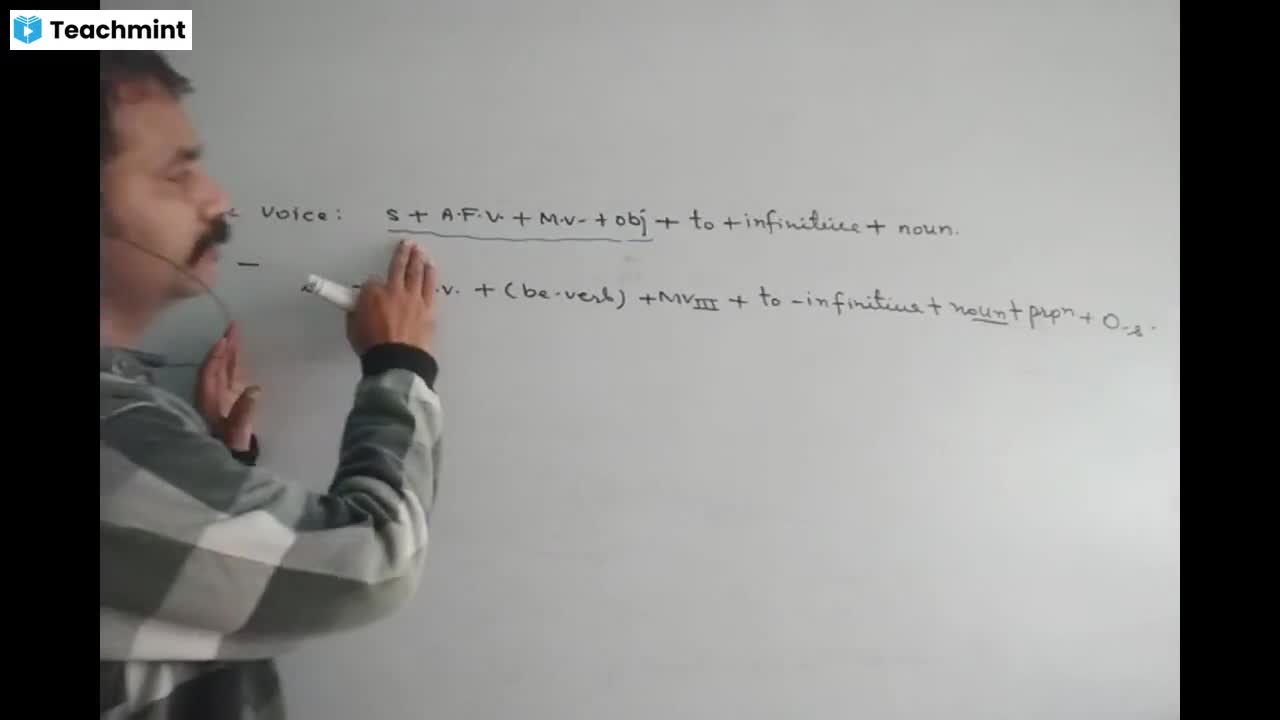 Teachmint
Voice: S + A.F.V. + M.V. + obj + to + infinitive + noun.
— .v. + (be-verb) + MVIII + to - infinitive + noun + prpn + O-s.